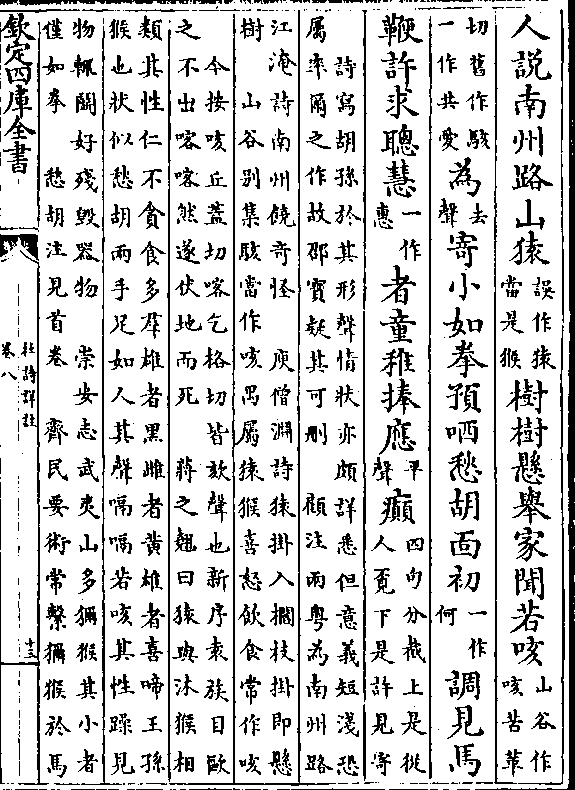 人説南州路山猿誤作猿當是猴樹樹懸舉家聞若咳山谷作咳苦華
切舊作駭一作共愛為去聲寄小如拳預哂愁胡面初一作何調見馬
鞭許求聰慧一作惠者童稚捧應平聲癲四句分截上是從人覔下是許見寄
詩寫胡孫於其形聲情狀亦頗詳悉但意義短淺恐
屬率爾之作故邵寳疑其可刪　顧注兩粤為南州路
江淹詩南州饒奇怪　庾僧淵詩猿掛入櫩枝掛即懸
樹　山谷别集駭當作咳禺屬猿猴喜怒飲食常作咳
今按咳丘蓋切喀乞格切皆欬聲也新序袁族目歐
之不出喀喀然遂伏地而死　蔣之翹曰猿與沐猴相
類其性仁不貪食多羣雄者黑雌者黄雄者喜啼王孫
猴也狀似愁胡兩手足如人其聲嗝嗝若咳其性躁見
物輒鬭好殘毁器物　崇安志武夷山多獼猴其小者
僅如拳　愁胡注見首卷　齊民要術常繫獼猴於馬
欽定四庫全書
杜詩詳註
卷八
十三